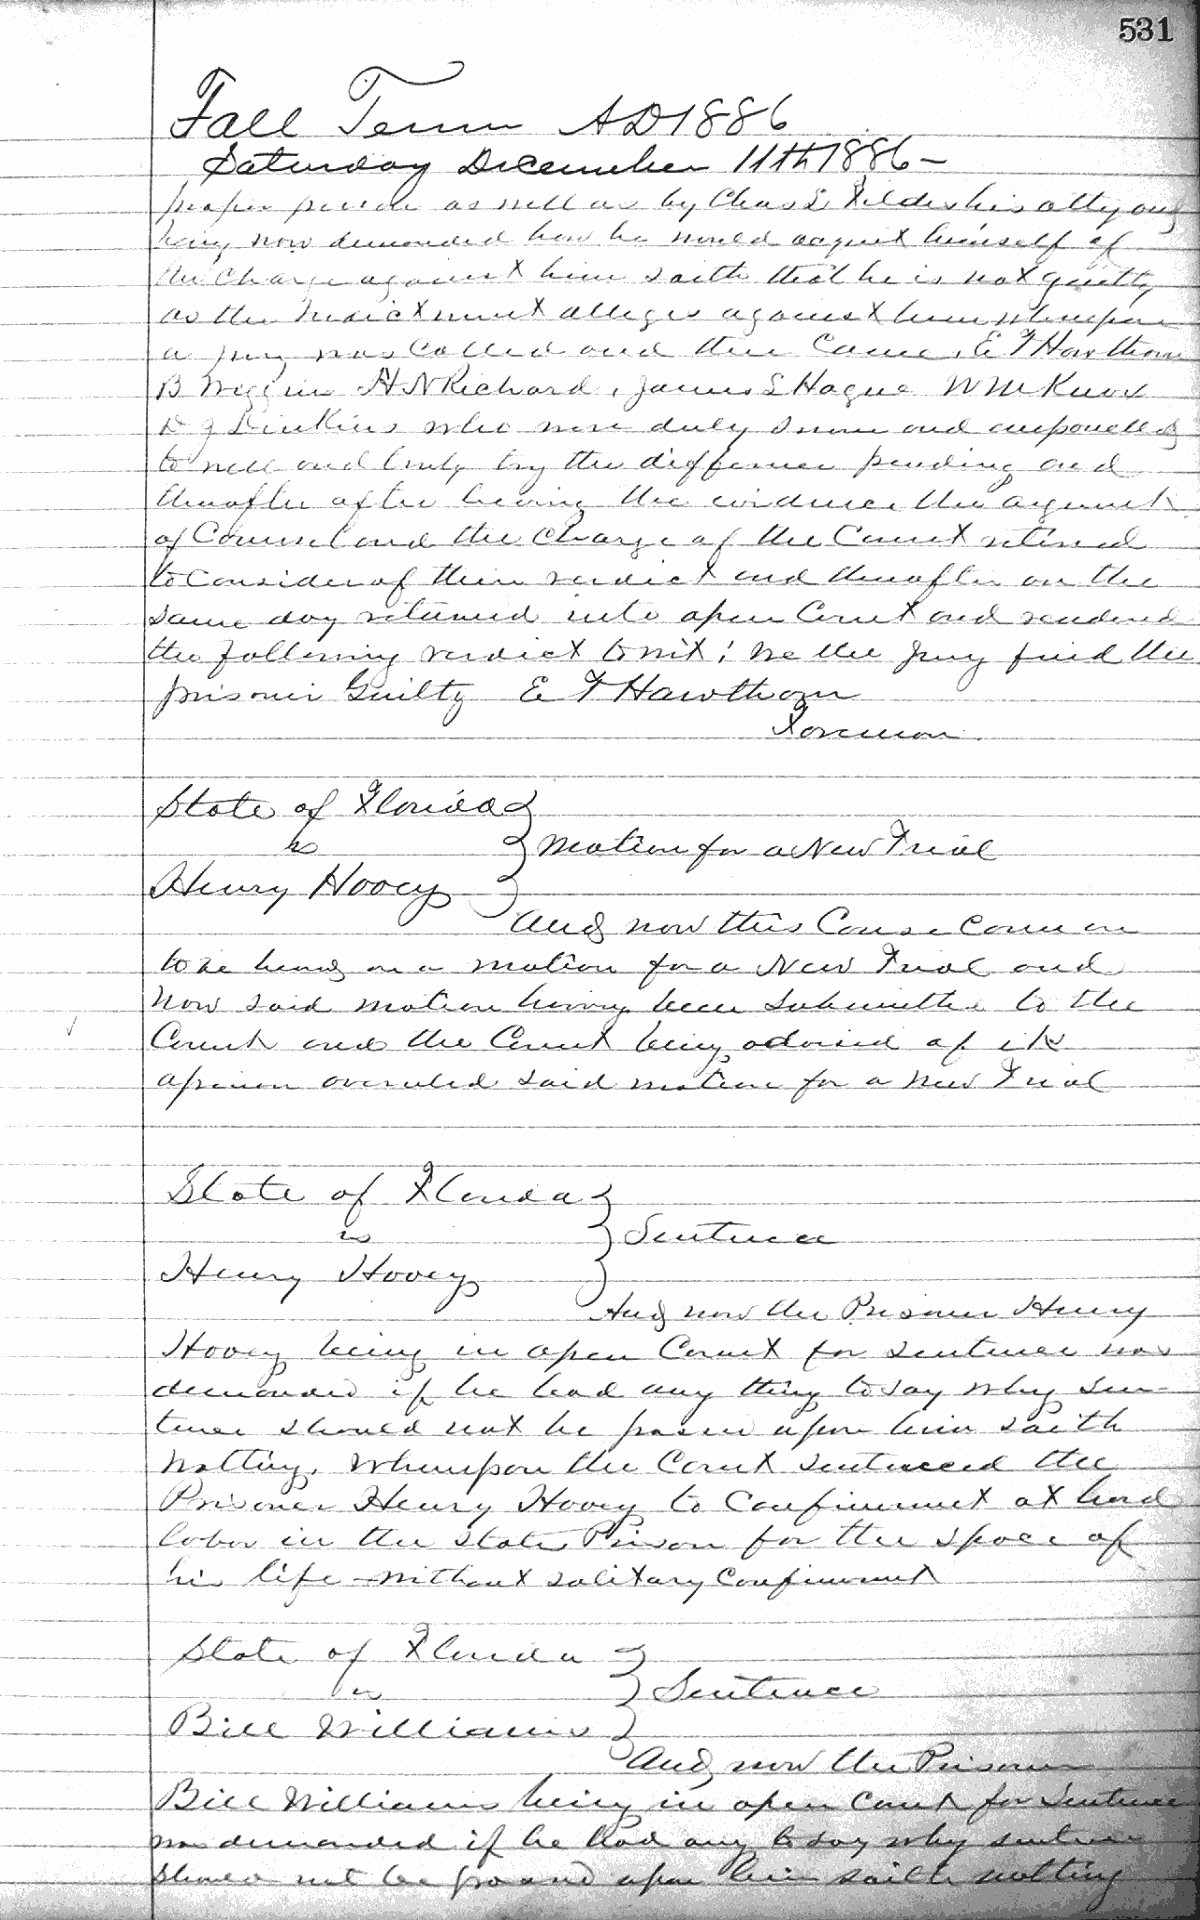 531
Fall Term AD 1886
Saturday December 11th 1886 –
proper person as well as by Chas E his atty and
being now demanded how he would acquit himself of
the Charge against him saith that he is not guilty
as the Indictment alleges against him whereupon
a jury was Called and then Came, E F Hawthorn
B Wiggins H N Richard, James S Hague Wm Knox
D J Dinkins who were duly sworn and empanelled
to well and truly try the difference pending and
thereafter after hearing the evidence the argument
of Counsel and the Charge of the Court retired
to Consider of their verdict and thereafter on the
same day returned into open Court and rendered
the following verdict towit; We the jury find the
prisoner Guilty E F Hawthorn
Foreman.
State of Florida }
vs } Motion for a New Trial
Henry Hovey }
And now this Cause Came on
to be heard on a motion for a New Trial and
now said motion having been submitted to the
Court and the Court being advised of its
opinion overruled said motion for a New Trial
State of Florida }
vs } Sentence
Henry Hovey }
And now the Prisoner Henry
Hovey being in open Court for sentence was
demanded if he had any thing to say why sen-
tence should not be passed upon him saith
nothing. Whereupon the Court sentenced the
Prisoner Henry Hovey to Confinement at hard
labor in the State Prison for the space of
his life without solitary Confinement
State of Florida }
vs } Sentence
Bill Williams }
And now the Prisoner
Bill Williams being in open Court for Sentence
was demanded if he had any to say why sentence
should not be upon him saith nothing